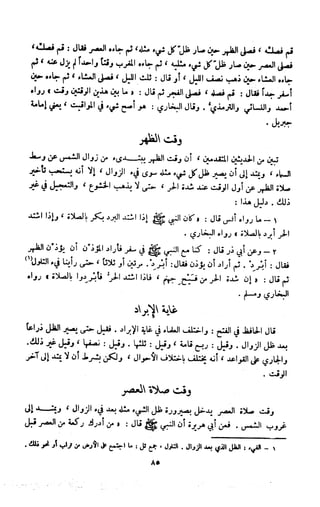 قم فصلّه ، فصلى الظهر حين صار ظل كل شيء مثله ، ثم جاءه العصر فقال : قم فصلّه ،
فصلى العصر حين صار ظل كل شيء مثليه ، ثم جاءه المغرب وقتاً واحداً لم يزل عنه ، ثم
جاءه العشاء حين ذهب نصف الليل ، أو قال : ثلث الليل ، فصلى العشاء ، ثم جاءه حين
أسفر جداً فقال : قم فصله ، فصلى الفجر ثم قال : « ما بين هذين الوقتين وقت » رواه
أحمد والنسائي والترمذي . وقال البخاري : هو أصح شيء في المواقيت ، يعني إمامة
جبريل .
وقت الظهر
تبين من الحديثين المتقدمين ، أن وقت الظهر يبتدىء من زوال الشمس عن وسط
السماء ، ويمتد إلى أن يصير ظل كل شيء مثله سوى فيء الزوال ، إلا أنه يستحب تأخير
صلاة الظهر عن أول الوقت عند شدة الحر ، حتى لا يذهب الخشوع ، والتعجيل في غير
ذلك . ودليل هذا :
١ - ما رواه أنس قال : « كان النبي ﷺ إذا اشتد البرد بكر بالصلاة ، وإذا اشتد
الحر أبرد بالصلاة » رواه البخاري .
٢ - وعن أبي ذر قال : كنا مع النبي ﷺ في سفر فأراد المؤذن أن يؤذن الظهر
فقال : أبرد . ثم أراد أن يؤذن فقال : أبرد . مرتين أو ثلاثاً ، حتى رأينا فيء التلول(١)
ثم قال : « إن شدة الحر من فيح جهنم ، فإذا اشتد الحر فأبردوا بالصلاة » رواه
البخاري ومسلم .
غاية الإبراد
قال الحافظ في الفتح : واختلف العلماء في غاية الإبراد . فقيل حتى يصير الظل ذراعاً
بعد ظل الزوال . وقيل : ربع قامة ، وقيل : ثلثها . وقيل : نصفها ، وقيل غير ذلك .
والجاري على القواعد ، أنه يختلف باختلاف الأحوال ، ولكن بشرط أن لا يمتد إلى آخر
الوقت .
وقت صلاة العصر
وقت صلاة العصر يدخل بصيرورة ظل الشيء مثله بعد فيء الزوال ، ويمتد إلى
غروب الشمس . فعن أبي هريرة أن النبي ﷺ قال : « من أدرك ركعة من العصر قبل
١ - الفيء : الظل الذي بعد الزوال . التلول ، جمع تل : ما اجتمع على الأرض من تراب أو نحو ذلك .
٨٥